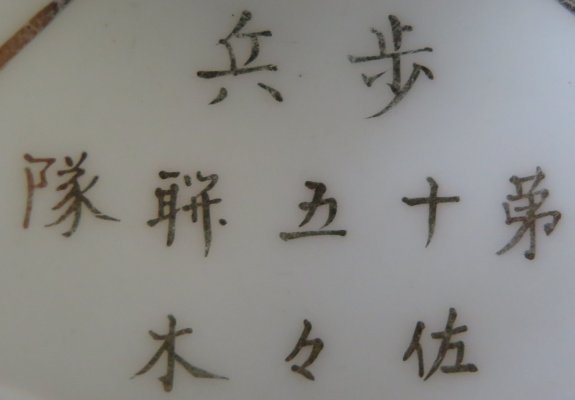 歩兵
第十五聯隊
佐々木